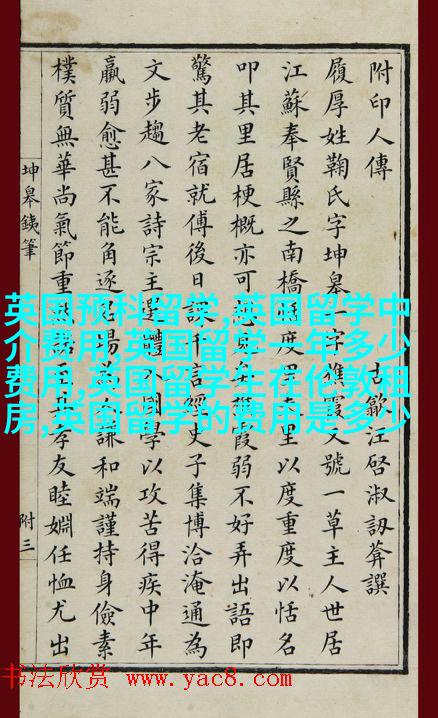 附印人傳
古歙江啓淑訒葊譔
履厚姓鞠氏字坤皋一字樵霞又號一草主人世居
江蘇奉賢縣之南橋度里以度重度以恬名
叩其里居梗概亦可霞弱不好弄出語即
驚其老宿就傅後日課千言經史子集博洽淹通為
文步趨八家詩宗主選體入國學以攻苦得疾中年
羸弱愈甚不能角逐名場謙和端謹持身儉素
樸質無華尚氣節重孝友睦婣任恤尤出
坤皋鐵筆
附三
英国预科留学,英国留学中
介费用,英国留学一年多少
费用,英国留学生在伦敦租
房,英国留学的费用是多少
书法欣赏 www.yac8.com